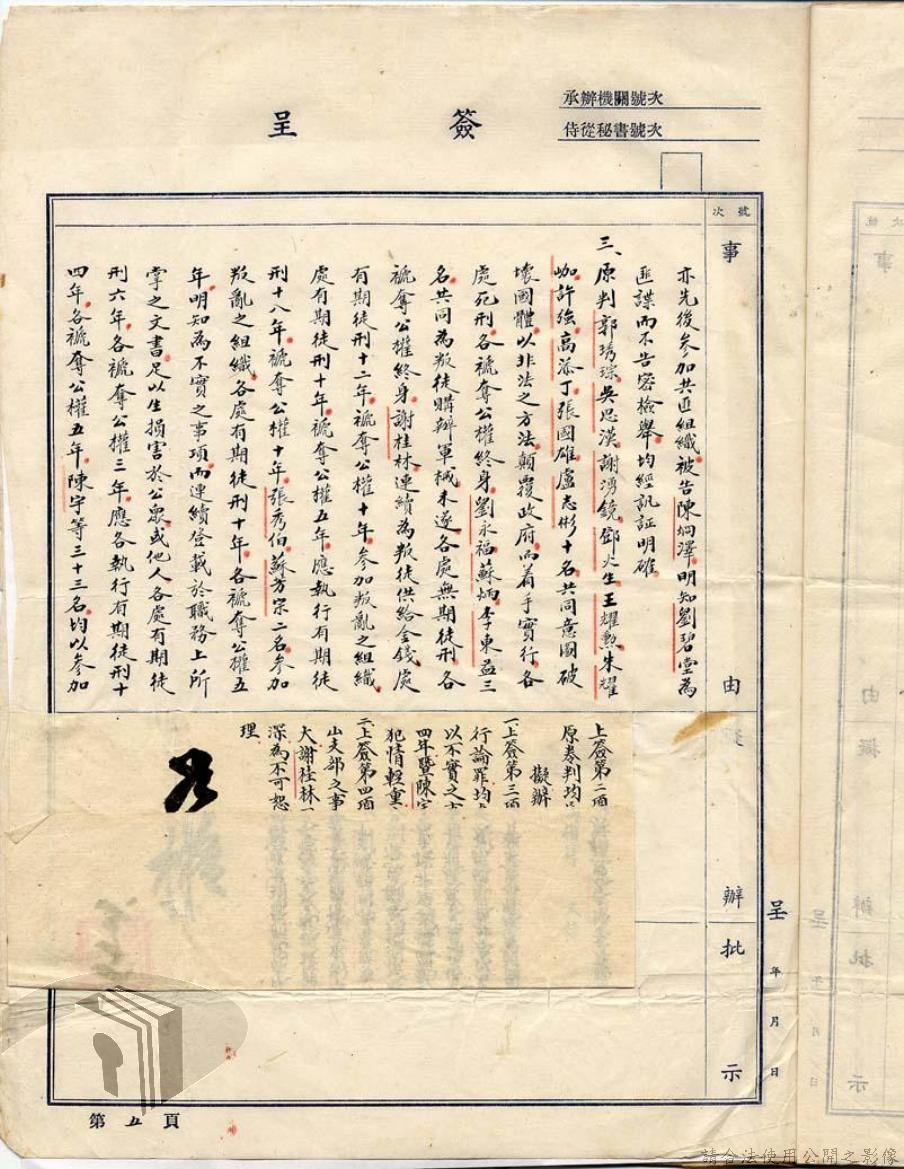 簽呈
承辦機關號次
侍從秘書號次
號次
事由
擬辦
批示
亦先後參加共匪組織被告陳炯澤明知劉碧堂為
匪諜而不告密檢舉均經訊証明確
三、原判郭琇琮吳思漢謝湧鏡鄧火生王耀勲朱耀
珈許強高添丁張國雄盧志彬十名共同意圖破
壞國體以非法之方法顛覆政府而着手實行各
處死刑各褫奪公權終身劉永福蘇炳李東益三
名共同為叛徒購辦軍械未遂各處無期徒刑各
褫奪公權終身謝桂林連續為叛徒供給金錢處
有期徒刑十二年褫奪公權十年參加叛亂之組織
處有期徒刑十年褫奪公權五年應執行有期徒
刑十八年褫奪公權十年張秀伯蘇芳宗二名參加
叛亂之組織各處有期徒刑十年各褫奪公權五
年明知為不實之事項而連續登載於職務上所
掌之文書足以生損害於公眾或他人各處有期徒
刑六年各褫奪公權三年應各執行有期徒刑十
四年各褫奪公權五年陳宇等三十三名均以參加
上簽第二項
原卷判均
擬辦
一、上簽第三項
行論罪均
以不實之
四年暨陳
犯情輕重
二、上簽第四項
山夫部之事
大謝桂林
深為不可恕
理
呈 年 月 日
第五頁
請合法使用公開之影像